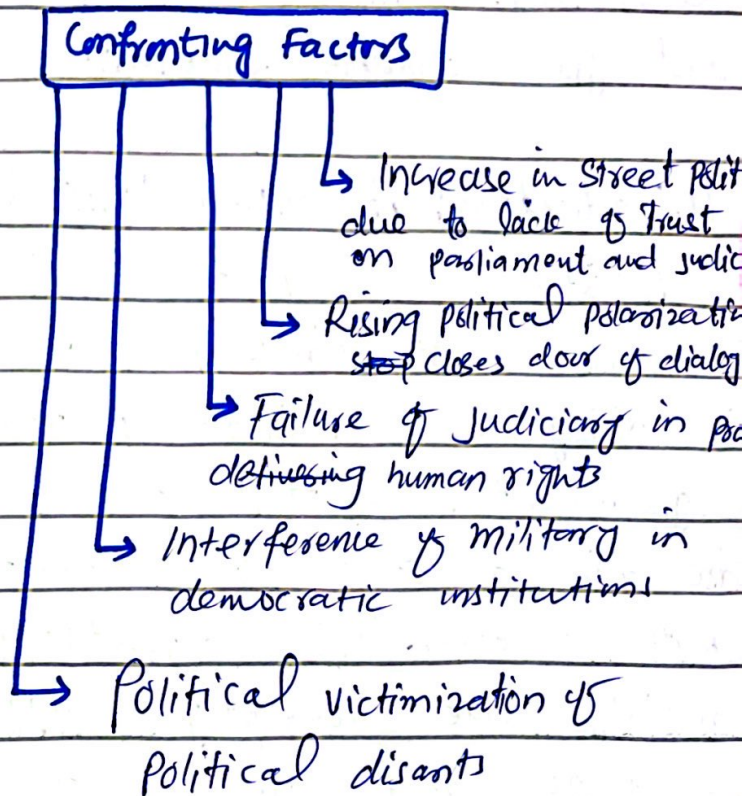 Confronting Factors
Increase in Street Polit
due to lack of Trust
on parliament and judic
Rising political polarizatio
stop closes door of dialog
Failure of judiciary in pro
delivering human rights
Interference of military in
democratic institutions
Political victimization of
Political disants